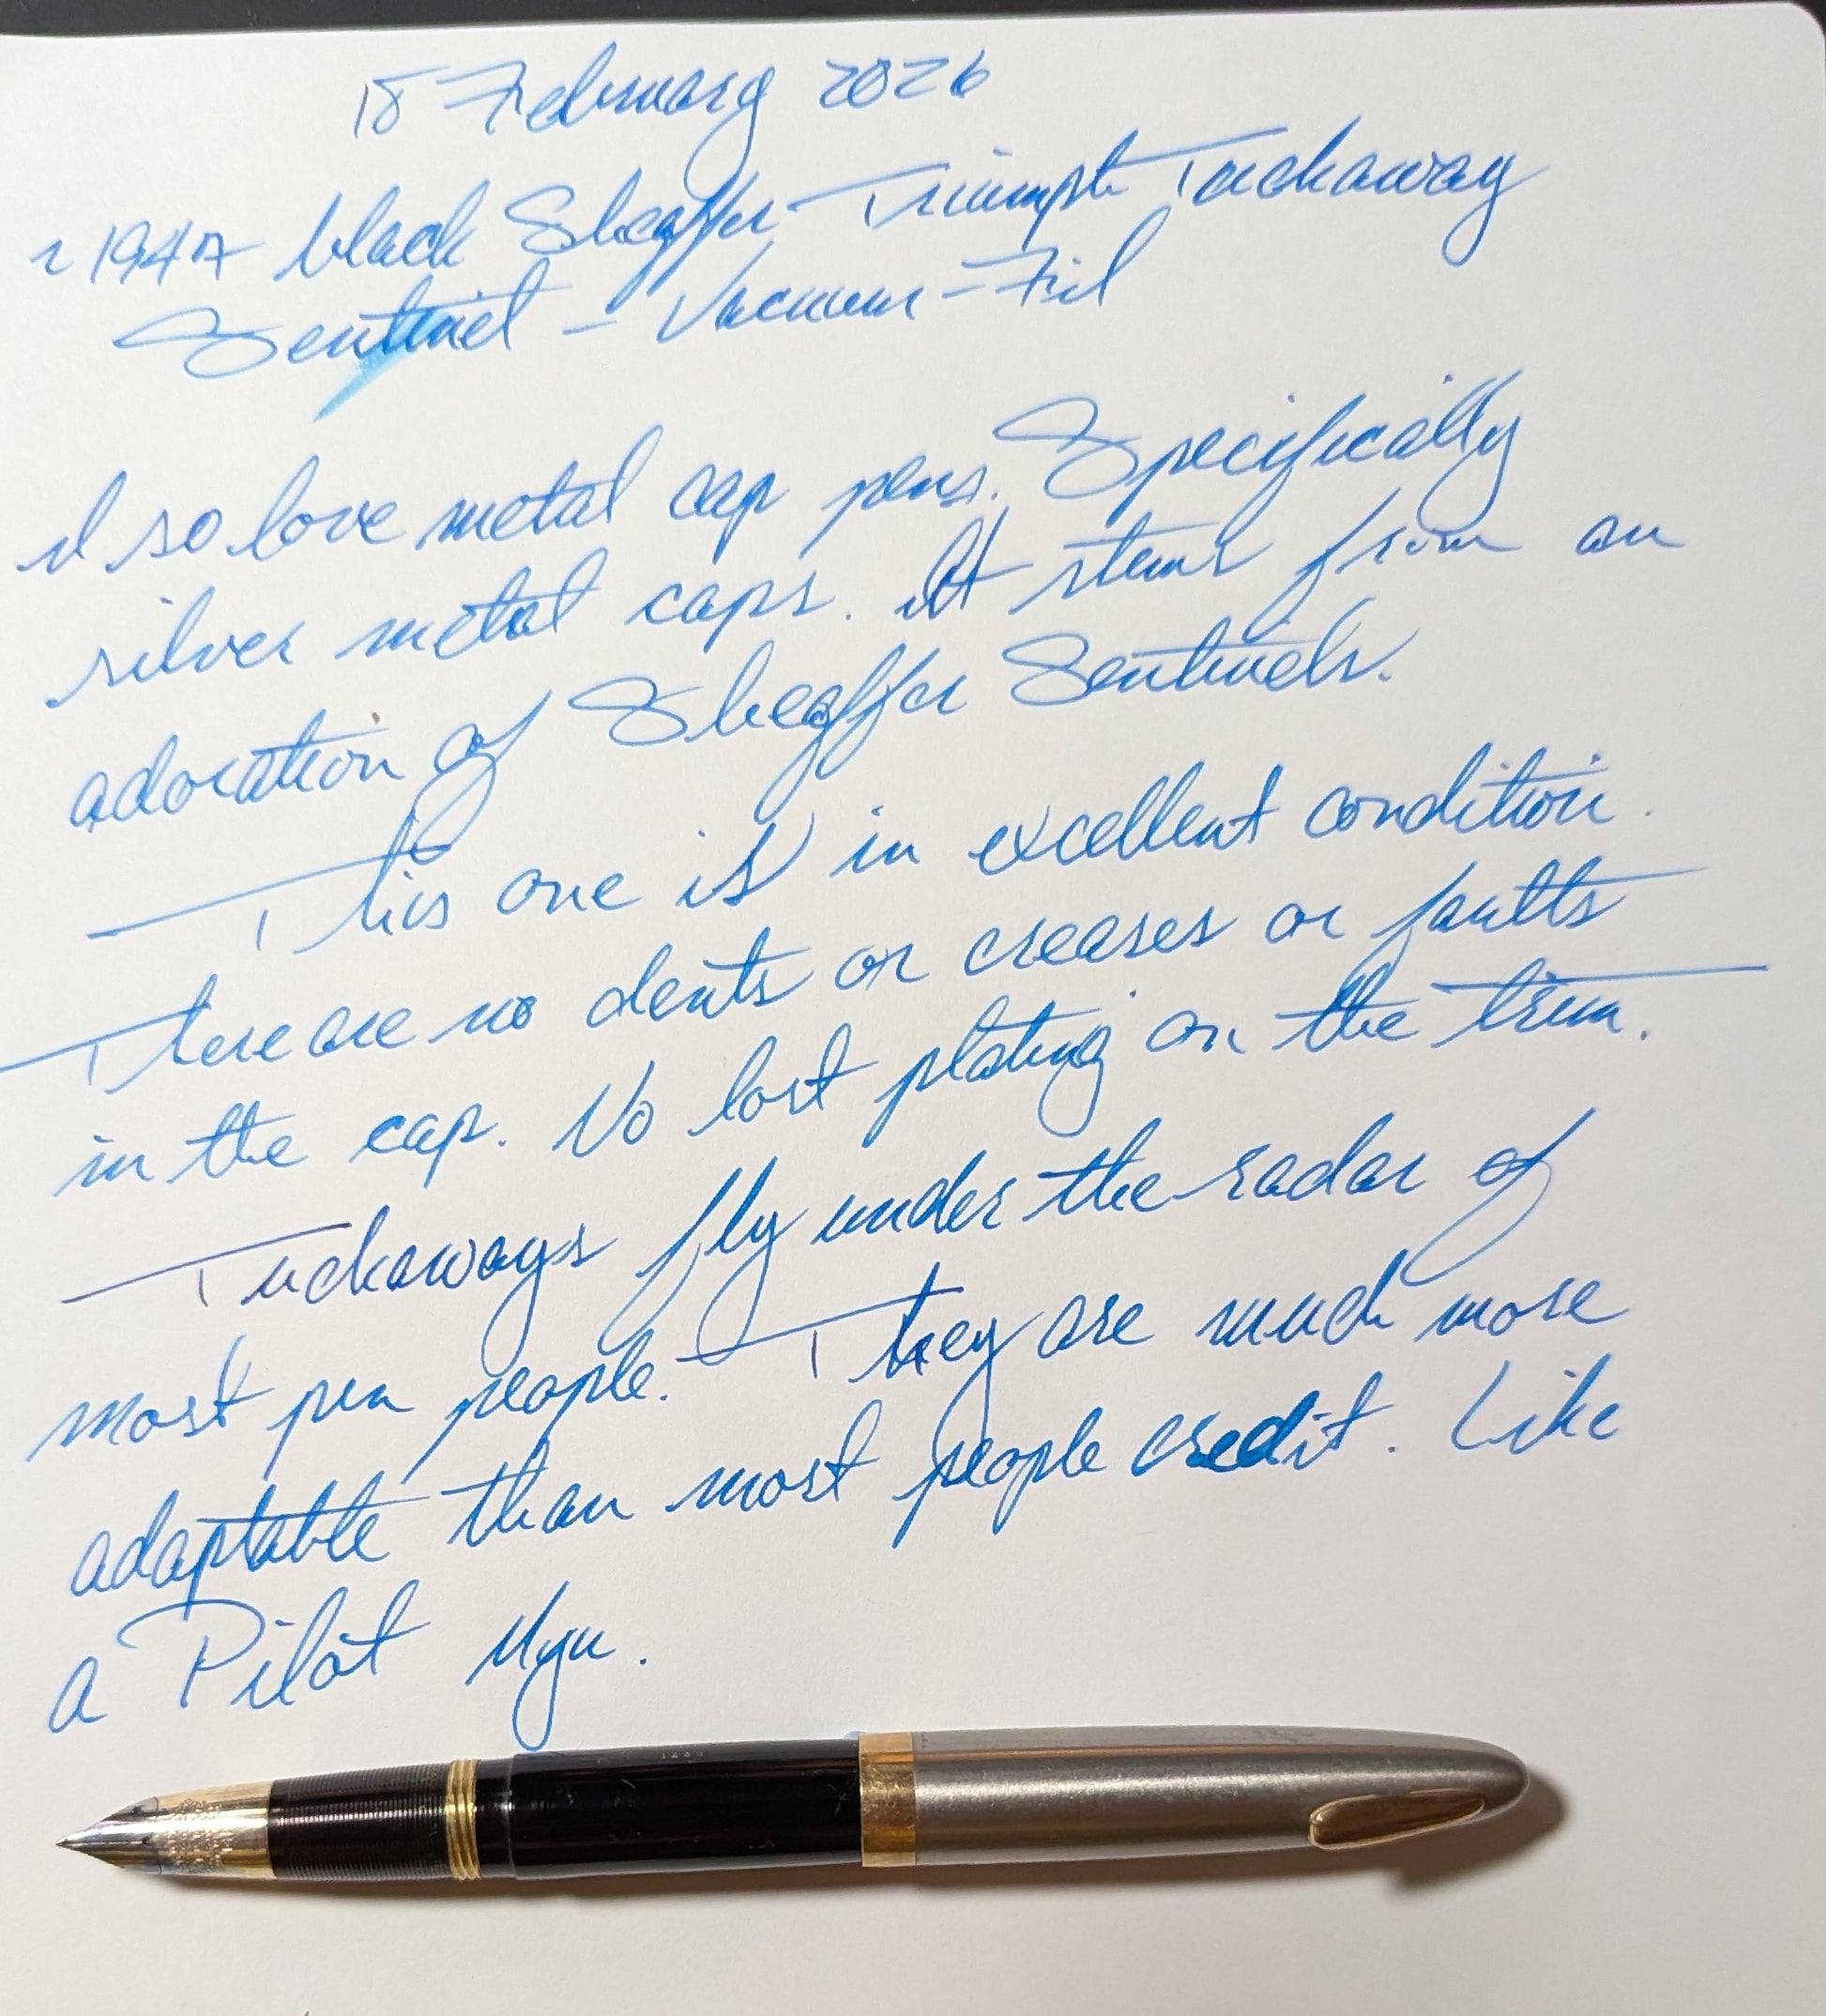 18 February 2026
~1947 black Sheaffer Triumph Tuckaway
Sentinel – Vacuum-Fil
I so love metal cap pens. Specifically
silver metal caps. It stems from an
adoration of Sheaffer Sentinels.
This one is in excellent condition.
There are no dents or creases or faults
in the cap. No lost plating on the trim.
Tuckaways fly under the radar of
most pen people. They are much more
adaptable than most people credit. Like
a Pilot Myu.